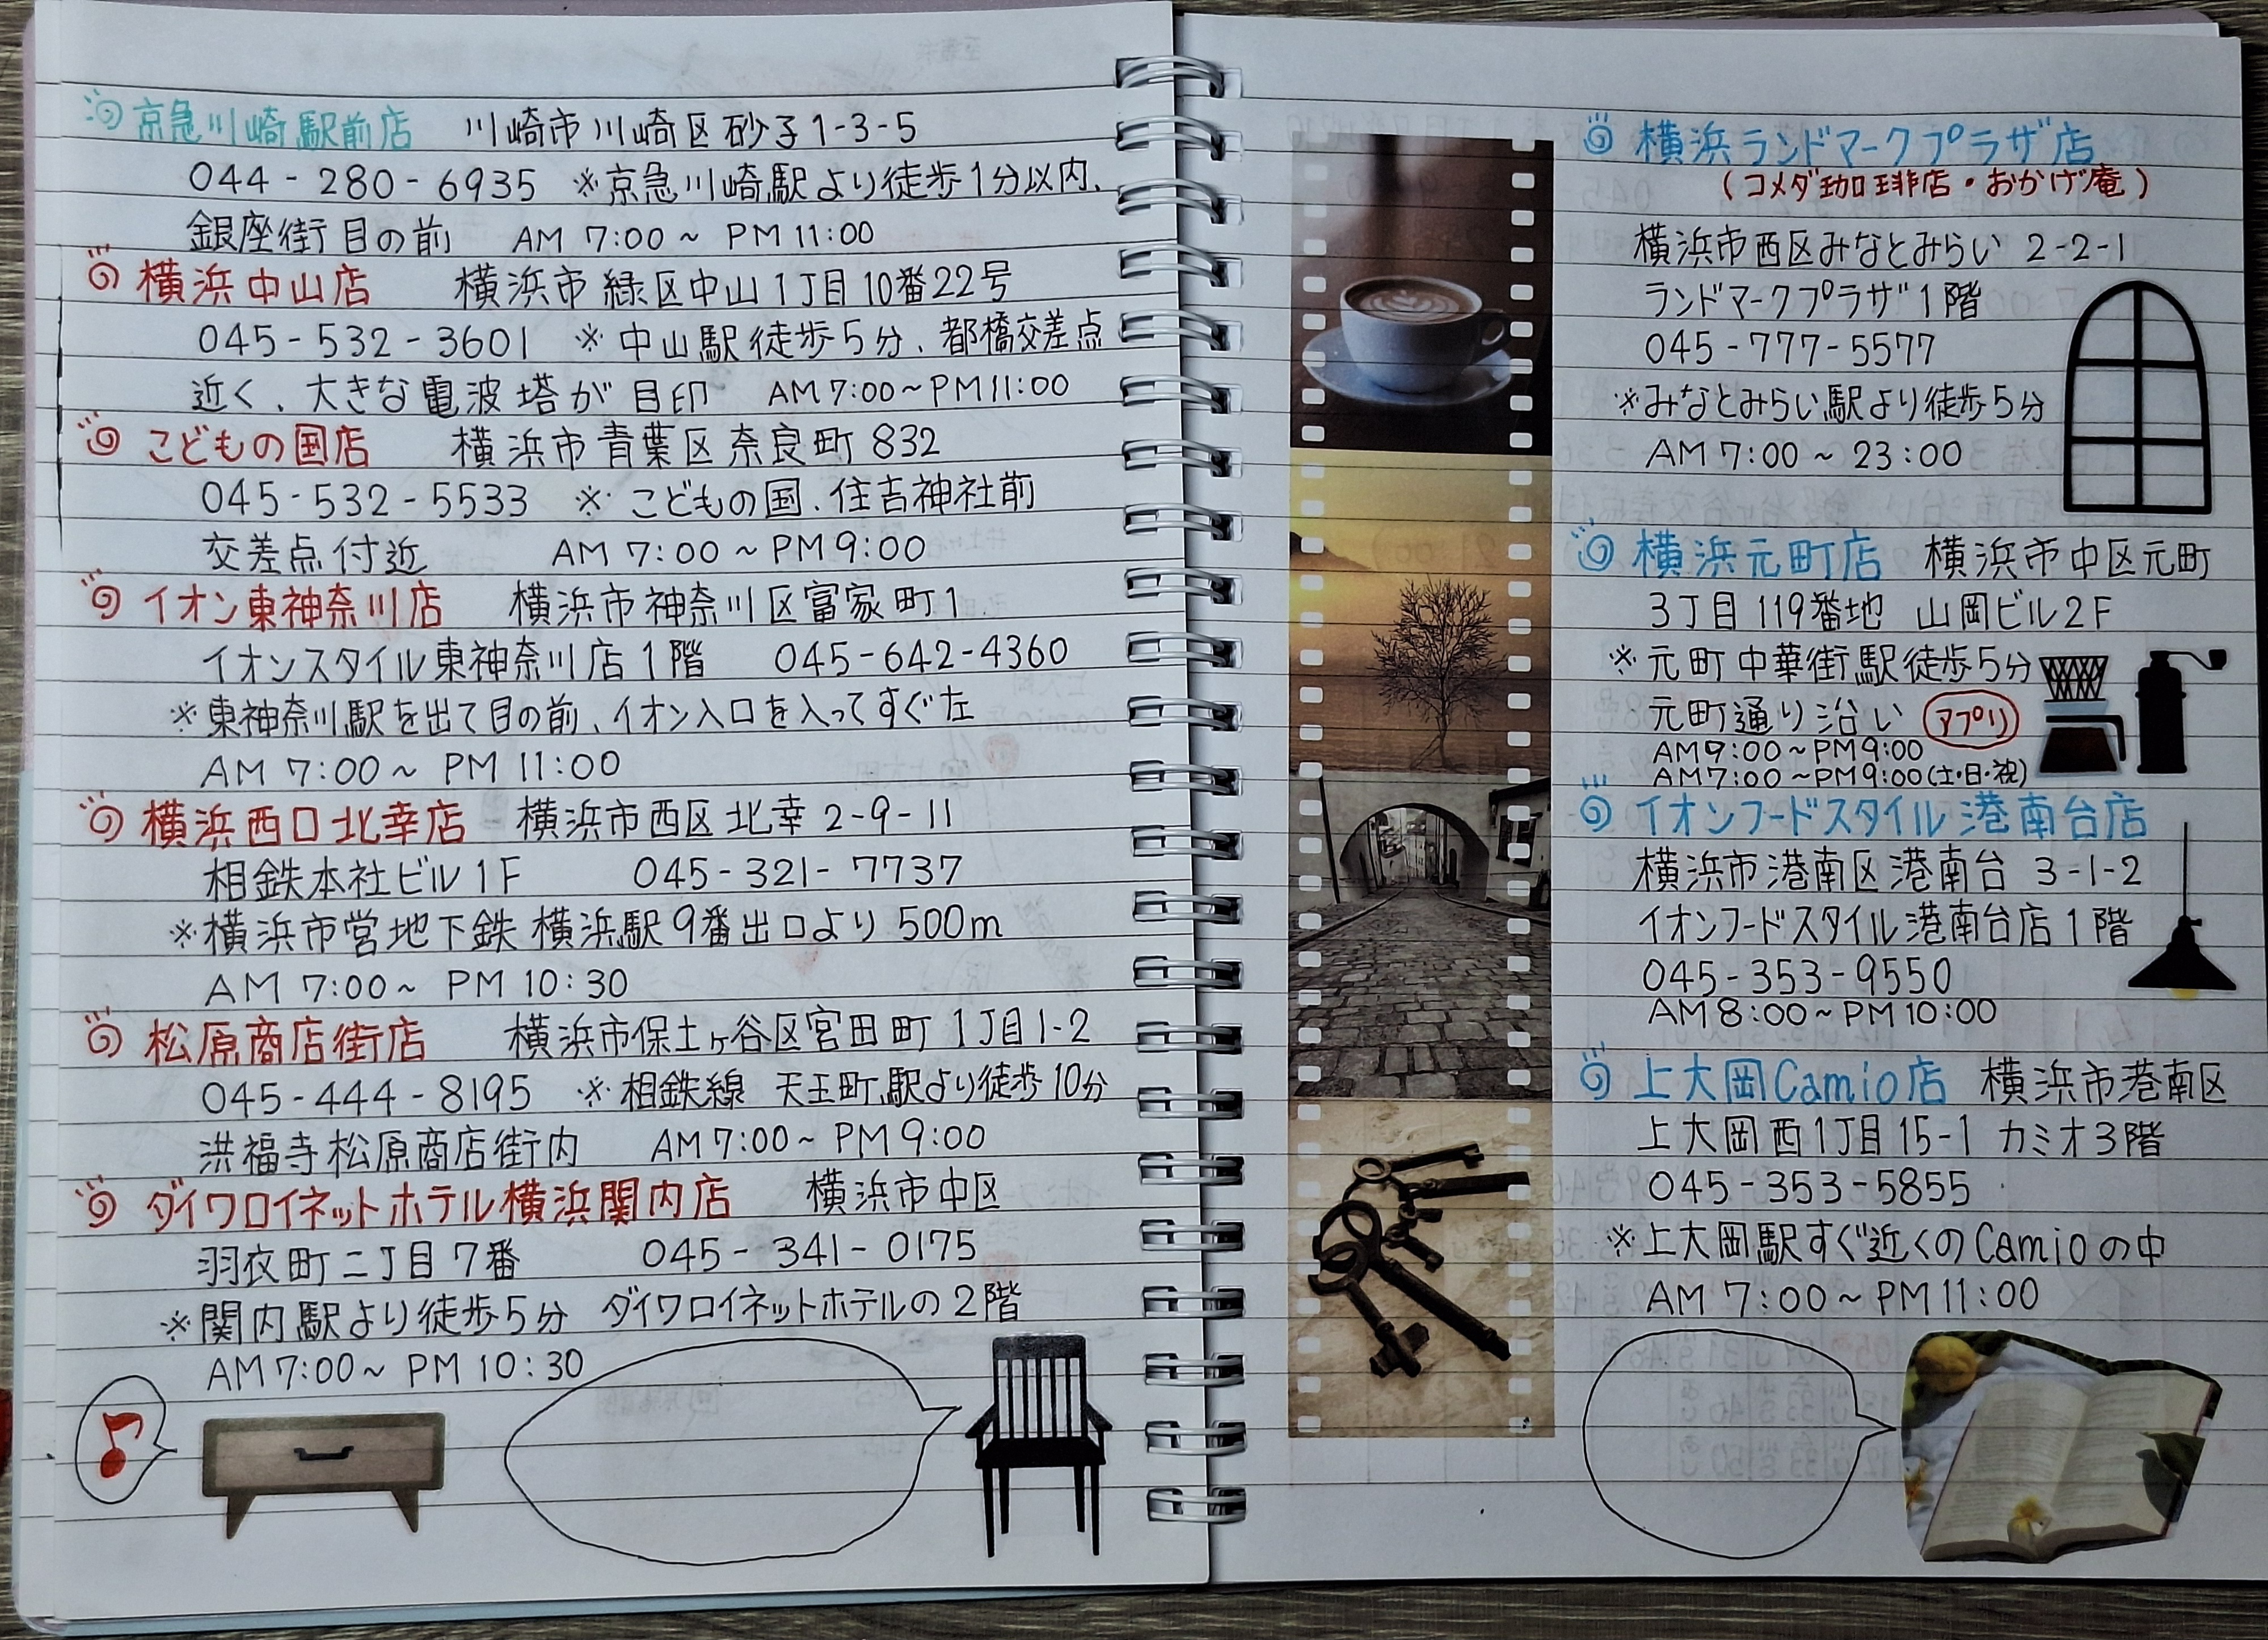 京急川崎駅前店 川崎市川崎区砂子1-3-5
044-280-6935 ※京急川崎駅より徒歩1分以内、
銀座街目の前 AM 7:00～PM 11:00
横浜中山店 横浜市緑区中山1丁目10番22号
045-532-3601 ※中山駅徒歩5分、都橋交差点
近く、大きな電波塔が目印 AM 7:00～PM 11:00
こどもの国店 横浜市青葉区奈良町832
045-532-5533 ※こどもの国、住吉神社前
交差点付近 AM 7:00～PM 9:00
イオン東神奈川店 横浜市神奈川区富家町1
イオンスタイル東神奈川店1階 045-642-4360
※東神奈川駅を出て目の前、イオン入口を入ってすぐ左
AM 7:00～PM 11:00
横浜西口北幸店 横浜市西区北幸2-9-11
相鉄本社ビル1F 045-321-7737
※横浜市営地下鉄 横浜駅9番出口より500m
AM 7:00～PM 10:30
松原商店街店 横浜市保土ヶ谷区宮田町1丁目1-2
045-444-8195 ※相鉄線 天王町駅より徒歩10分
洪福寺松原商店街内 AM 7:00～PM 9:00
ダイワロイネットホテル横浜関内店 横浜市中区
羽衣町二丁目7番 045-341-0175
※関内駅より徒歩5分 ダイワロイネットホテルの2階
AM 7:00～PM 10:30
横浜ランドマークプラザ店
(コメダ珈琲店・おかげ庵)
横浜市西区みなとみらい 2-2-1
ランドマークプラザ1階
045-777-5577
※みなとみらい駅より徒歩5分
AM 7:00～23:00
横浜元町店 横浜市中区元町
3丁目119番地 山岡ビル2F
※元町中華街駅徒歩5分
元町通り沿い アプリ
AM 9:00～PM 9:00
AM 7:00～PM 9:00(土・日・祝)
イオンフードスタイル港南台店
横浜市港南区港南台 3-1-2
イオンフードスタイル港南台店1階
045-353-9550
AM 8:00～PM 10:00
上大岡Camio店 横浜市港南区
上大岡西1丁目15-1 カミオ3階
045-353-5855
※上大岡駅すぐ近くのCamioの中
AM 7:00～PM 11:00